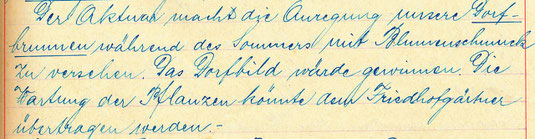 Der Aktuar macht die Anregung unsere Dorf-
brunnen während des Sommers mit Blumenschmuck
zu versehen. Das Dorfbild würde gewinnen. Die
Wartung der Pflanzen könnte dem Friedhofgärtner
übertragen werden.-